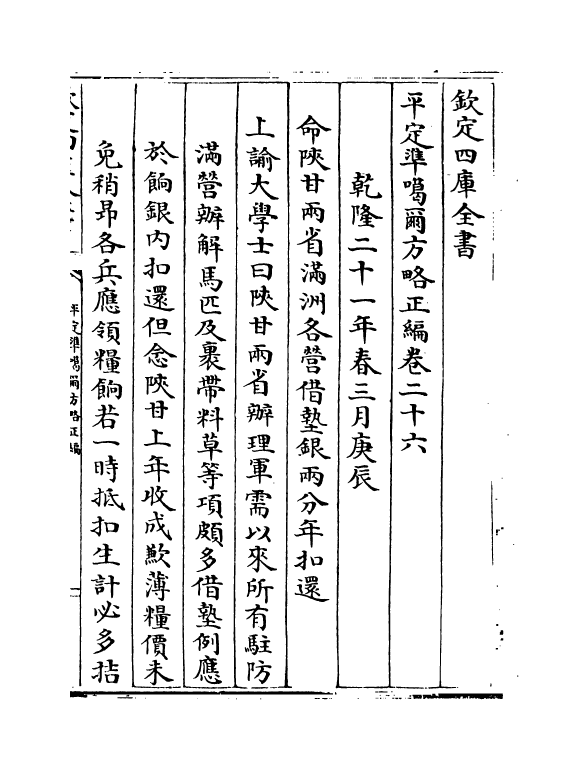 欽定四庫全書
平定準噶爾方略正編卷二十六
乾隆二十一年春三月庚辰
命陝甘兩省滿洲各營借墊銀兩分年扣還
上諭大學士曰陝甘兩省辦理軍需以來所有駐防
滿營辦解馬匹及裹帶料草等項頗多借墊例應
於餉銀內扣還但念陝甘上年收成歉薄糧價未
免稍昂各兵應領糧餉若一時抵扣生計必多拮
平定準噶爾方略正編
一